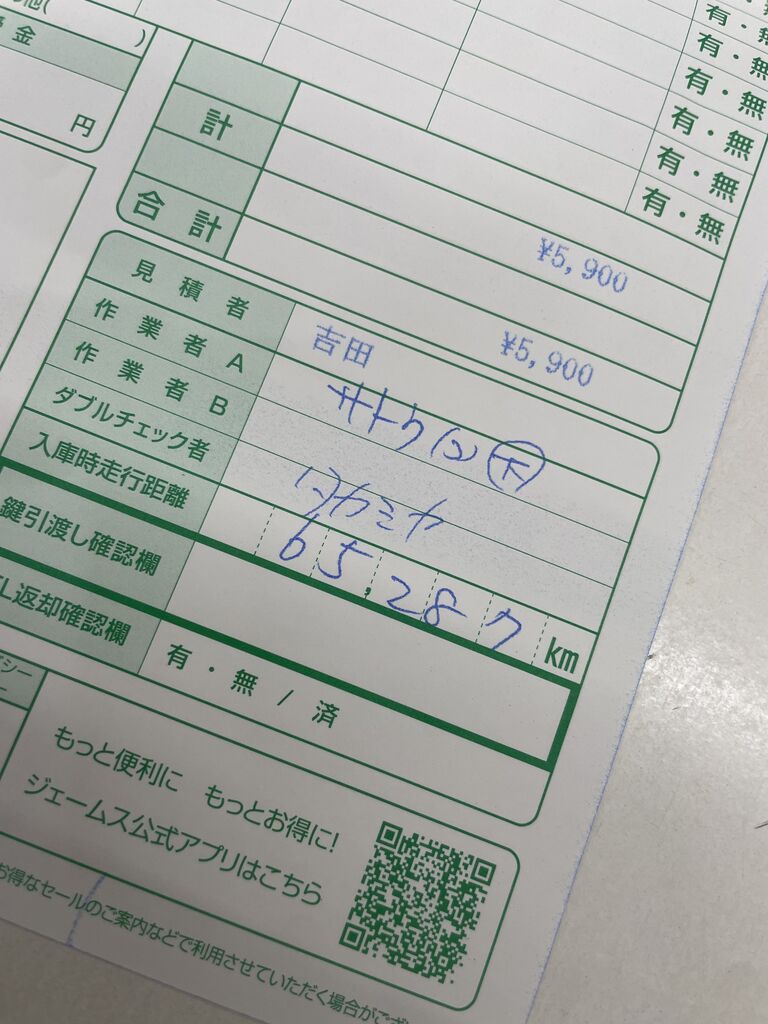 有・無
有・無
有・無
有・無
有・無
有・無
金
円
計
¥5,900
合計
¥5,900
見積者 吉田
作業者A サトウ(コ) 下
作業者B
ダブルチェック者 タカミヤ
入庫時走行距離 65,287 km
鍵引渡し確認欄
返却確認欄 有・無/済
もっと便利に もっとお得に!
ジェームス公式アプリはこちら
お得なセールのご案内などで利用させていただく場合がござ